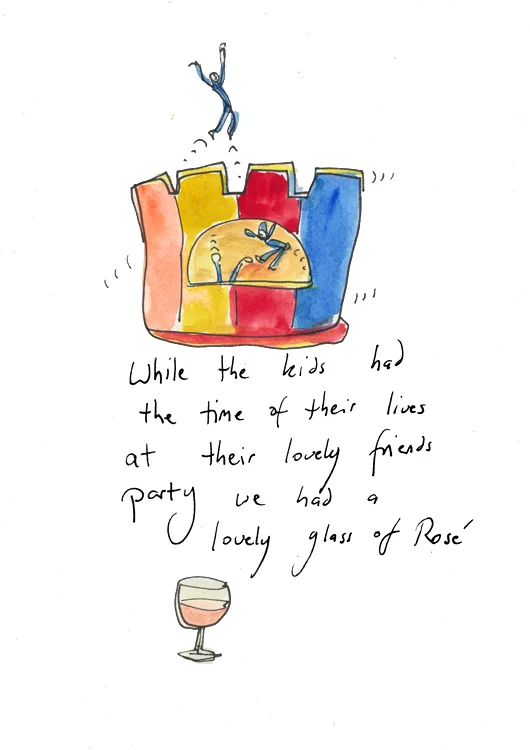 While the kids had
the time of their lives
at their lovely friends
party we had a
lovely glass of Rosé